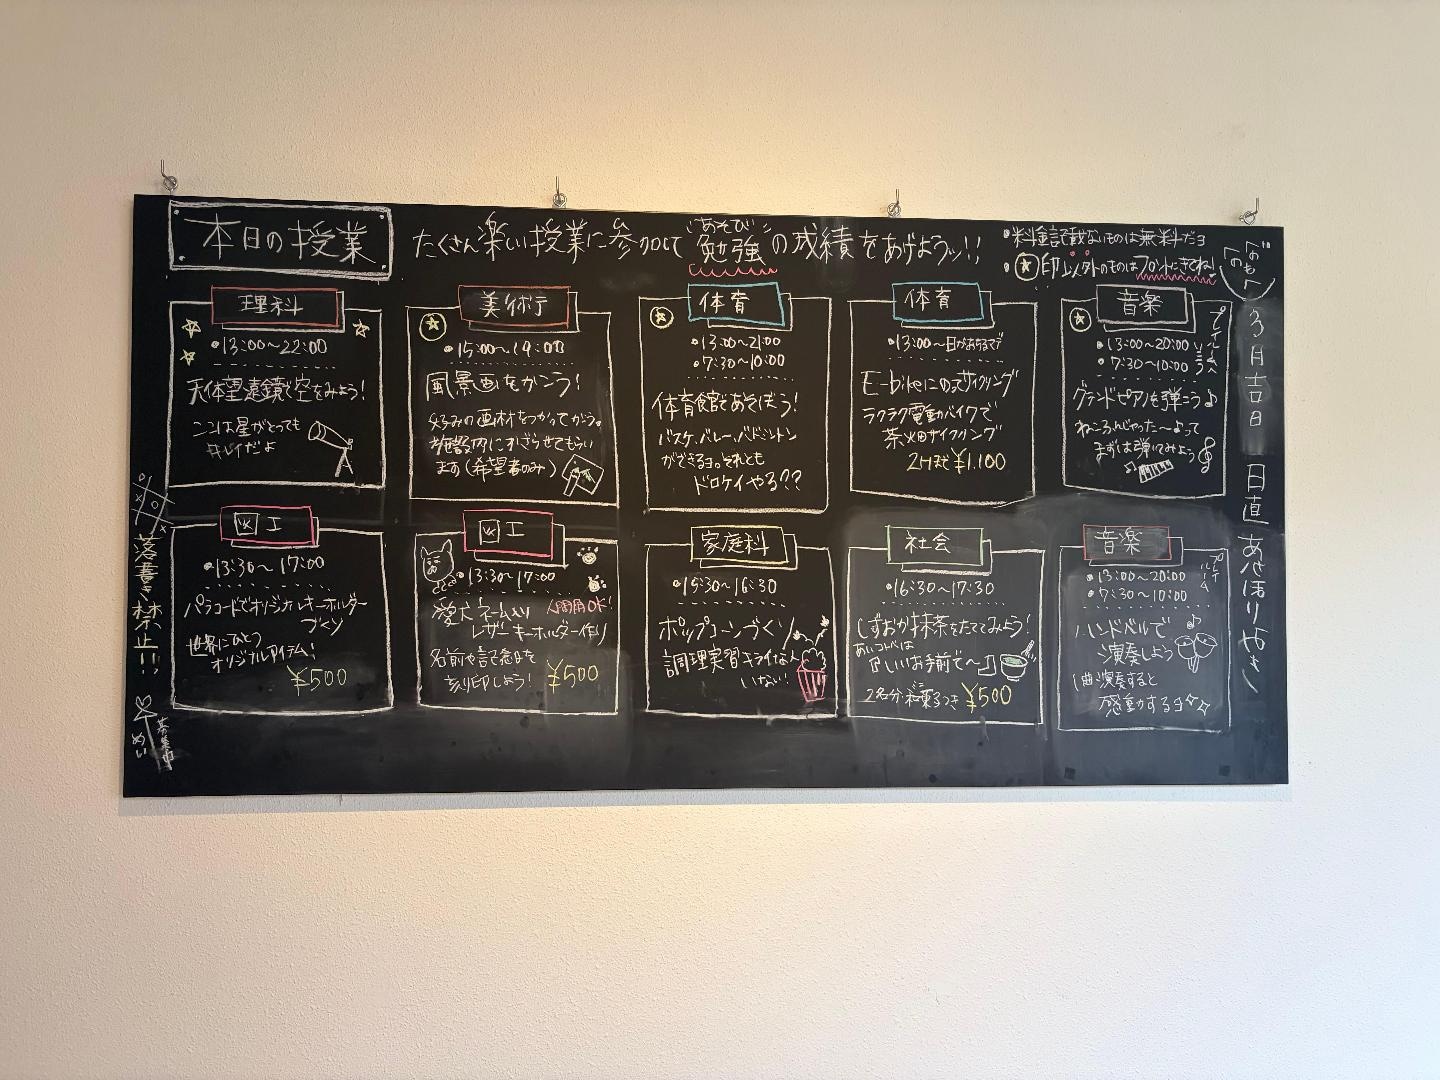 本日の授業
たくさん楽しい授業に参加して勉強の成績をあげようッ!!
あそび
・料金記載ないものは無料だヨ
・☆印以外のものはフロントにきてね!
理科
・13:00~22:00
天体望遠鏡で空をみよう!
ここは星がとっても
キレイだよ
美術
・15:00~19:00
風景画をかこう!
好みの画材をつかってかう。
ます(希望者のみ)
体育
・13:00~21:00
・7:30~10:00
体育館であそぼう!
バスケ、バレー、バドミントン
ができるヨ。それとも
ドロケイやる??
体育
・13:00~
E-bikeにのってサイクリング
ラクラク電動バイクで
茶畑サイクリング
2Hまで ¥1,100
音楽
・13:00~20:00
・7:30~10:00
プレイルーム
グランドピアノを弾こう♪
ねころんじゃった~よって
まずは弾いてみよう
図工
・13:30~17:00
パラコードでオリジナルキーホルダー
づくり
世界にひとつ
オリジナルアイテム!
¥500
図工
・13:30~17:00
愛犬ネーム入り
人間用OK!
レザーキーホルダー作り
名前や記念日を
刻印しよう!
¥500
家庭科
・15:30~16:30
ポップコーンづくり
調理実習キライな人
いない!
社会
・16:30~17:30
しずおか抹茶をたててみよう!
2名分 和菓子つき ¥500
音楽
・13:00~20:00
・7:30~10:00
プレイルーム
ハンドベルで
演奏しよう
1曲演奏すると
感動するヨ
3月吉日 日直
落書き禁止!!
めい
募集中